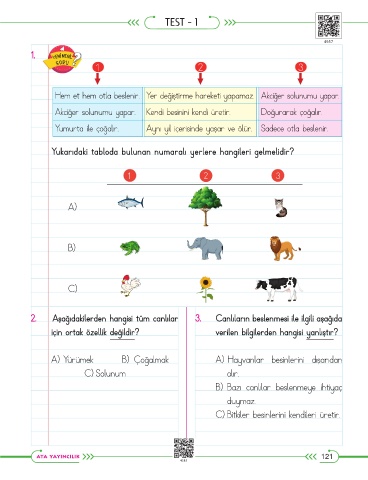 TEST - 1
1.
YENİ NESİL
SORU
1 2 3
Hem et hem otla beslenir. Yer değiştirme hareketi yapamaz. Akciğer solunumu yapar.
Akciğer solunumu yapar. Kendi besinini kendi üretir. Doğurarak çoğalır.
Yumurta ile çoğalır. Aynı yıl içerisinde yaşar ve ölür. Sadece otla beslenir.
Yukarıdaki tabloda bulunan numaralı yerlere hangileri gelmelidir?
1 2 3
A)
B)
C)
2. Aşağıdakilerden hangisi tüm canlılar
için ortak özellik değildir?
A) Yürümek B) Çoğalmak
C) Solunum
3. Canlıların beslenmesi ile ilgili aşağıda
verilen bilgilerden hangisi yanlıştır?
A) Hayvanlar besinlerini dışarıdan
alır.
B) Bazı canlılar beslenmeye ihtiyaç
duymaz.
C) Bitkiler besinlerini kendileri üretir.
ATA YAYINCILIK
121